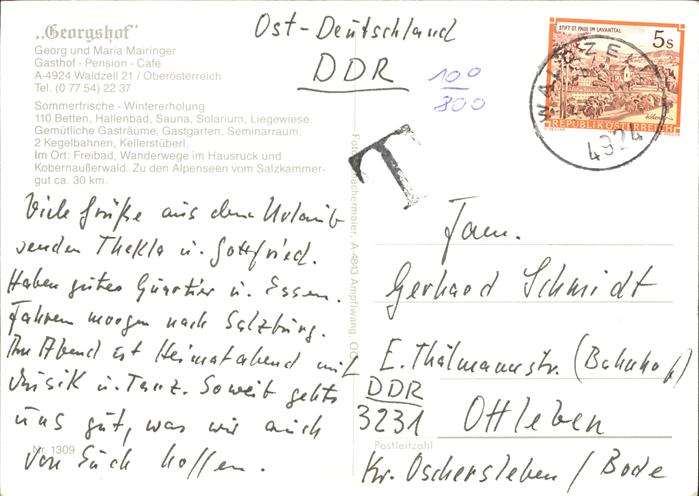 „Georgshof"
Georg und Maria Mairinger
Gasthof - Pension - Café
A-4924 Waldzell 21 / Oberösterreich
Tel. (0 77 54) 22 37
Sommerfrische - Wintererholung
110 Betten, Hallenbad, Sauna, Solarium, Liegewiese.
Gemütliche Gasträume, Gastgarten, Seminarraum,
2 Kegelbahnen, Kellerstüberl.
Im Ort: Freibad, Wanderwege im Hausruck und
Kobernaußerwald. Zu den Alpenseen vom Salzkammer-
gut ca. 30 km.
Viele Grüße aus dem Urlaub
senden Thekla u. Gottfried.
Haben gutes Quartier u. Essen.
Fahren morgen nach Salzburg.
Am Abend ist Heimatabend mit
Musik u. Tanz. Soweit gehts
uns gut, was wir auch
von Euch hoffen.
Nr. 1309
A-4843 Ampflwang, OÖ
Ost-Deutschland
DDR
100
800
T
STIFT ST. PAUL IM LAVANTTAL
5 S
REPUBLIK ÖSTERREICH
WALDZELL
4924
Fam.
Gerhard Schmidt
E. Thälmannstr. (Bahnhof)
DDR
3231 Ottleben
Postleitzahl
Kr. Oschersleben / Bode